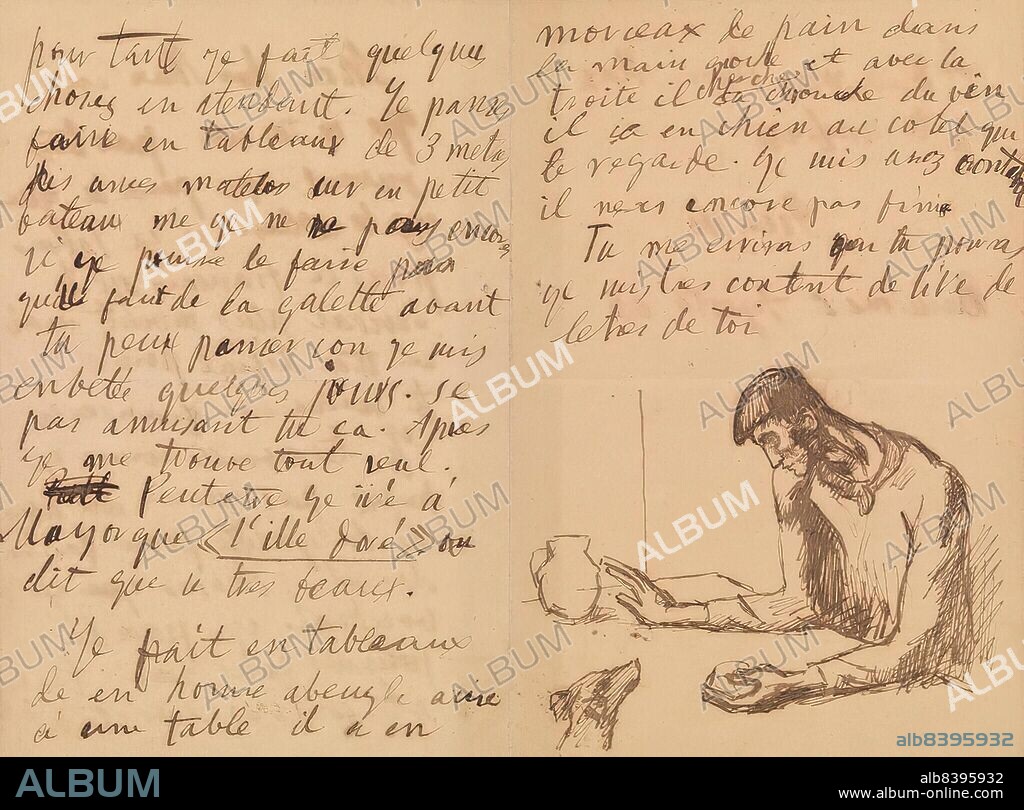 pour tant ye fait quelques
choses en atendent. Ye panse
faire en tableaux de 3 metres
des matelos sur en petit
bateau me ye ne pas encore
si ye pouree le faire
faut de la galette avant
Tu peux panser con ye mis
enbette quelques jours. se
pas amusant tu ca. Apres
ye me trouve tout seul.
Peutetre ye iré á
Mayorque <<l'ille doré>> on
dit que se tres beaux.
Ye fait en tableaux
de en homme abeugle asise
á une table il a en
morceaux de pain dans
la main goche et avec la
troite il cherche la cruche du vin
il ia en chien au coté que
le regarde. Ye mis asez contan
il nes encore pas finie
Tu me eriras quan tu pouras
ye mis tres content de live de
letres de toi
ALBUM
alb8395932
alb8395932
www.album-online.com